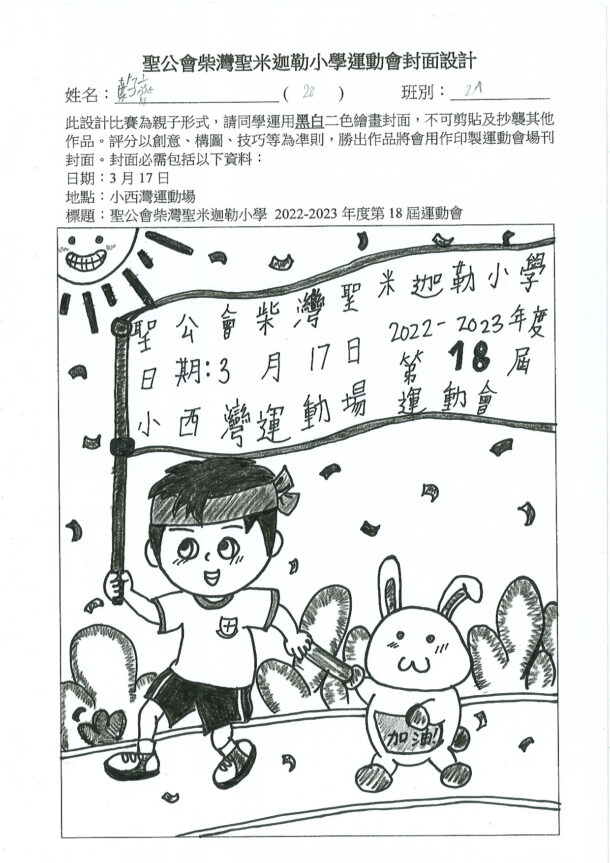 聖公會柴灣聖米迦勒小學運動會封面設計
姓名： ( 28 ) 班別： 2A
此設計比賽為親子形式，請同學運用黑白二色繪畫封面，不可剪貼及抄襲其他
作品。評分以創意、構圖、技巧等為準則，勝出作品將會用作印製運動會場刊
封面。封面必需包括以下資料：
日期：3 月 17 日
地點：小西灣運動場
標題：聖公會柴灣聖米迦勒小學 2022-2023 年度第 18 屆運動會
聖公會柴灣聖米迦勒小學
2022-2023年度
日期:3月17日 第18屆
小西灣運動場 運動會
加油!!